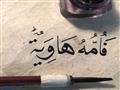 فَأُمُّهُ هَاوِيَةٌ